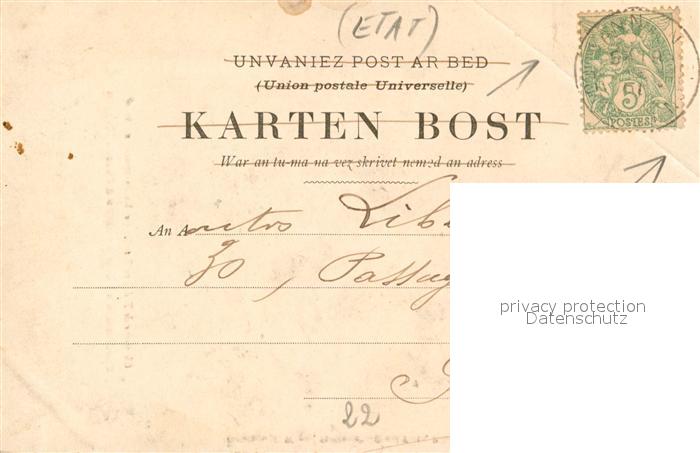 (ETAT)
UNVANIEZ POST AR BED
(Union postale Universelle)
KARTEN BOST
War an tu-ma na vez skrivet nemed an adress
An A
30, Passag
5
POSTES
privacy protection
Datenschutz
22